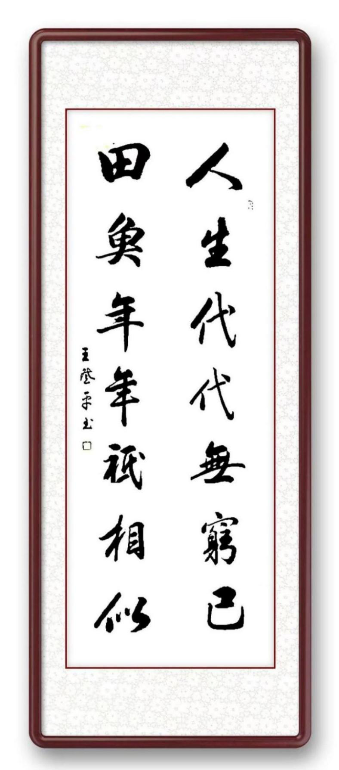 人生代代無窮已
田魚年年祇相似
王平书